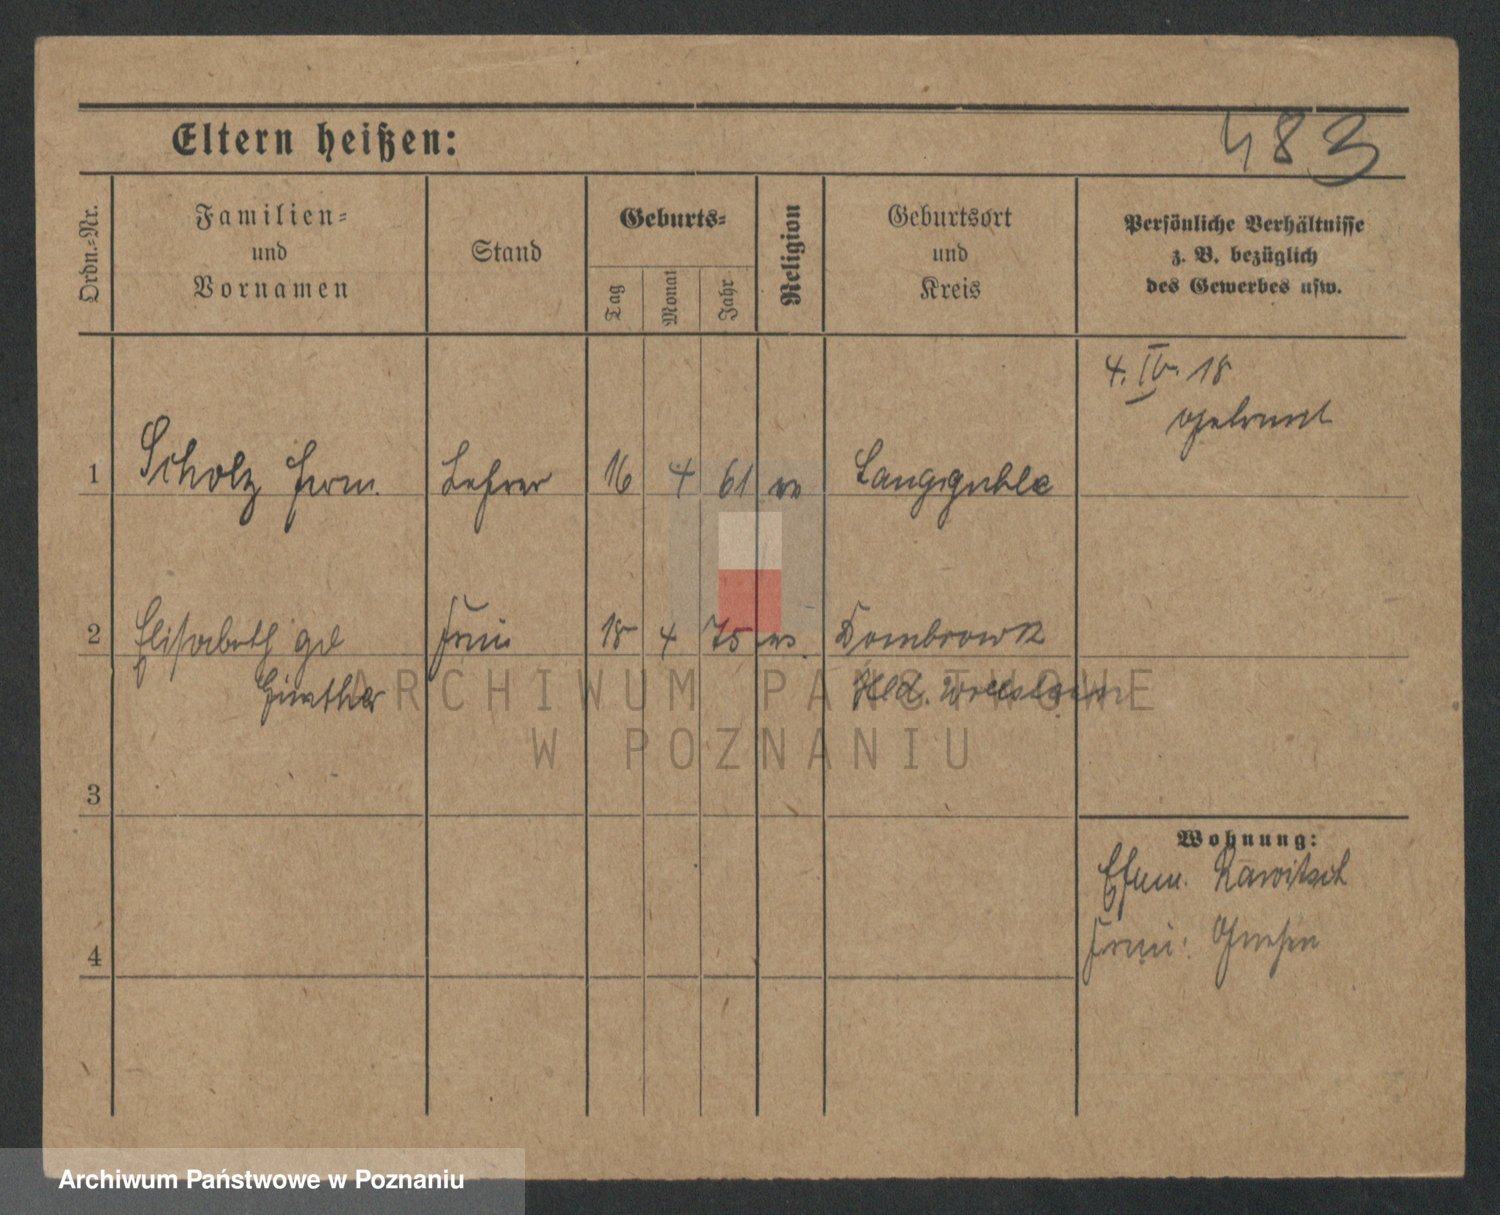 Eltern heißen:
483
Ordn.=Nr.
Familien=
und
Vornamen
Stand
Geburts=
Tag
Monat
Jahr
Religion
Geburtsort
und
Kreis
Persönliche Verhältnisse
z. B. bezüglich
des Gewerbes usw.
4. IV. 18
getrennt
1 Scholz Herm. Lehrer 16 4 61 ev Langguhle
2 Elisabeth geb Frau 18 4 75 ev. Dombrowk
Günther Hld. Wollstein
3
Wohnung:
Ehem. Rawitsch
Frau: Gnesen
4
ARCHIWUM PAŃSTWOWE
W POZNANIU
Archiwum Państwowe w Poznaniu